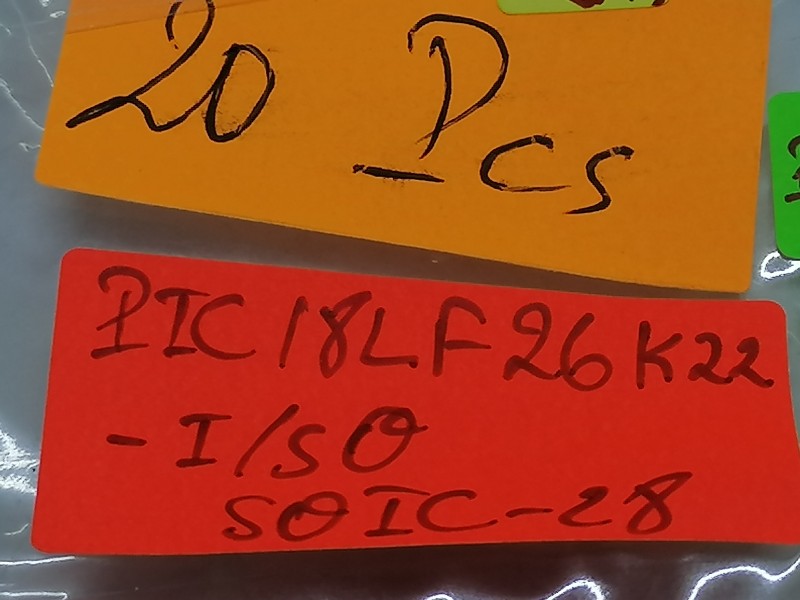 20 Pcs
PIC18LF26K22
-I/SO
SOIC-28